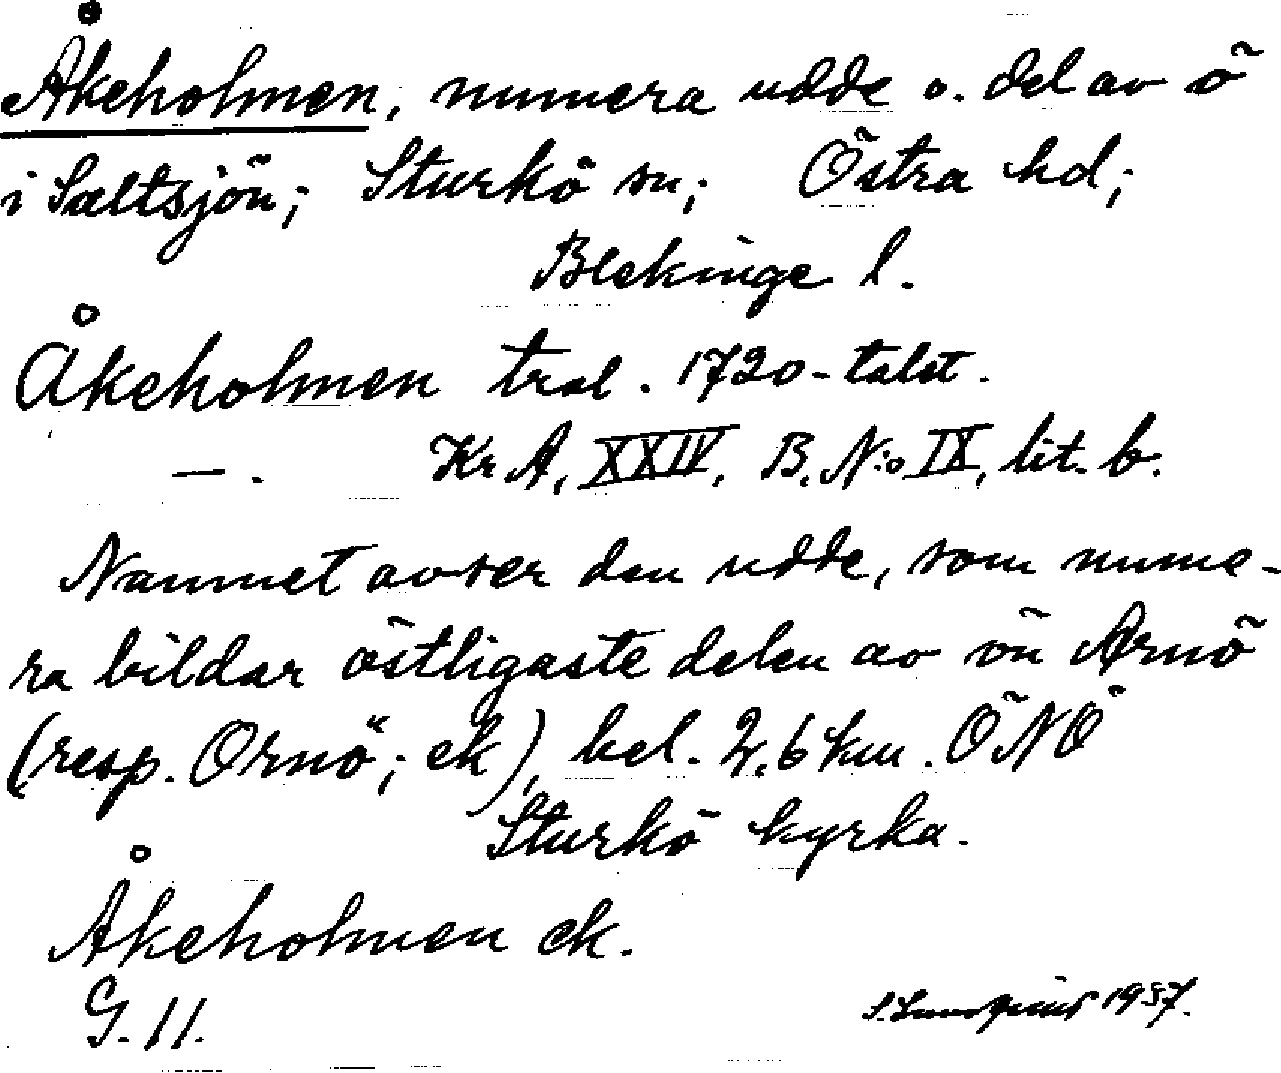 Åkeholmen, numera udde o. del av ö
i Saltsjön; Sturkö sn; Östra hd;
Blekinge l.
Åkeholmen tral. 1720-talet.
—. KrA, XXIV, B. N:o IX, lit. b.
Namnet avser den udde, som nume-
ra bildar östligaste delen av ön Arnö
(resp. Ornö; ek), bel. 2,6 km. ÖNÖ
Sturkö kyrka.
Åkeholmen ek.
G. 11. 1937.